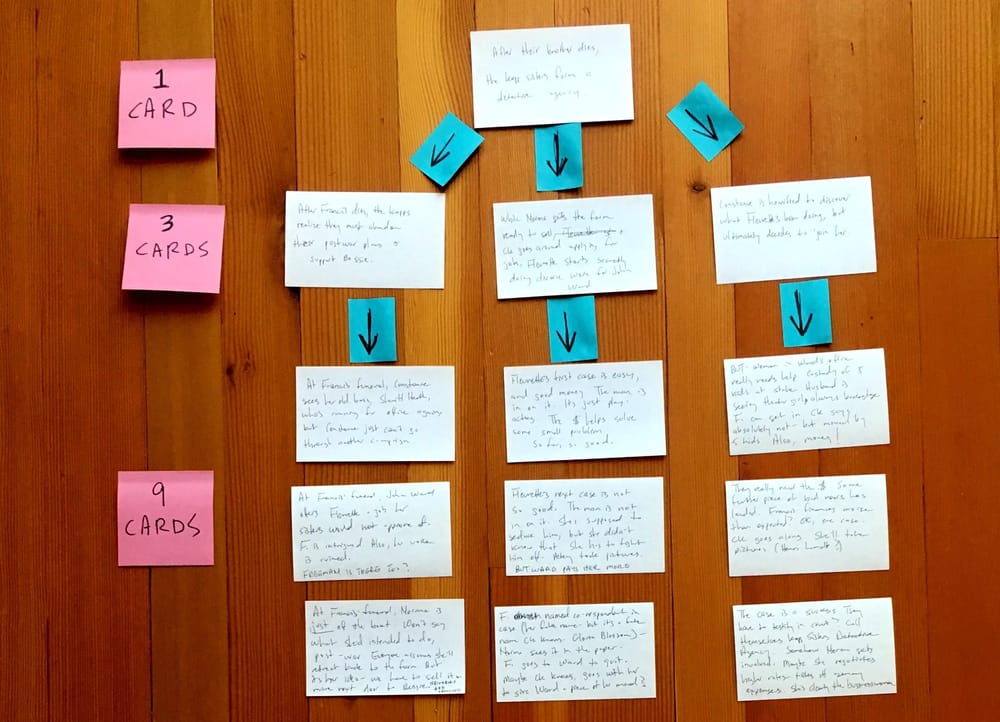 1
CARD
After their brother dies,
the Kopp sisters form a
detective agency.
3
CARDS
After Francis dies, the Kopps
realize they must abandon
their postwar plans &
support Bessie.
While Norma gets the farm
ready to sell, &
Cke goes around applying for
jobs, Fleurette starts secretly
doing divorce work for John
Ward
Constance is horrified to discover
what Fleurette's been doing, but
ultimately decides to join her
9
CARDS
At Francis' funeral, Constance
sees her old boss, Sheriff Heath,
who's running for office again,
but Constance just can't go
through another campaign.
Fleurette's first case is easy,
and good money. The man is
in on it. It's just play-
acting. The $ helps solve
some small problem
So far, so good.
BUT- woman in Ward's office
really needs help. Custody of 5
kids at stake. Husband is
seeing theater girl, always backstage
F. can get in. Cke says
absolutely not- but moved by
5 kids. Also, money!
At Francis' funeral, John Ward
offers Fleurette a job her
sisters would not approve of.
F. is intrigued. Also, her voice
is ruined.
FREEMAN IS THERE TOO?
Fleurette's next case is not
so good. The man is not
in on it. She's supposed to
seduce him, but she didn't
know that. She has to fight
him off. Petey took pictures.
BUT WARD PAYS HER MORE
They really need the $. Some
further piece of bad news has
landed. Francis' finances worse
than expected? OK, one case.
Cke goes along. She'll take
pictures (Henri Landt?)
At Francis' funeral, Norma is
just off the boat. Won't say
what she'd intended to do,
post-war. Everyone assumes she'll
retreat back to the farm. But
it's her idea- we have to sell it &
move next door to Bessie.
F. named co-respondent in
case (her fake name- but it's a fake
name Cke knows- Gloria Blossom)-
Norma sees it in the paper.
F. goes to Ward to quit.
Maybe Cke knows, goes with her
to give Ward a piece of her mind?
The case is a success. They
have to testify in court? Call
themselves Kopp Sisters Detective
Agency. Somehow Norma gets
involved. Maybe she negotiates
higher rates- takes off
expenses. She's clearly the businesswoman